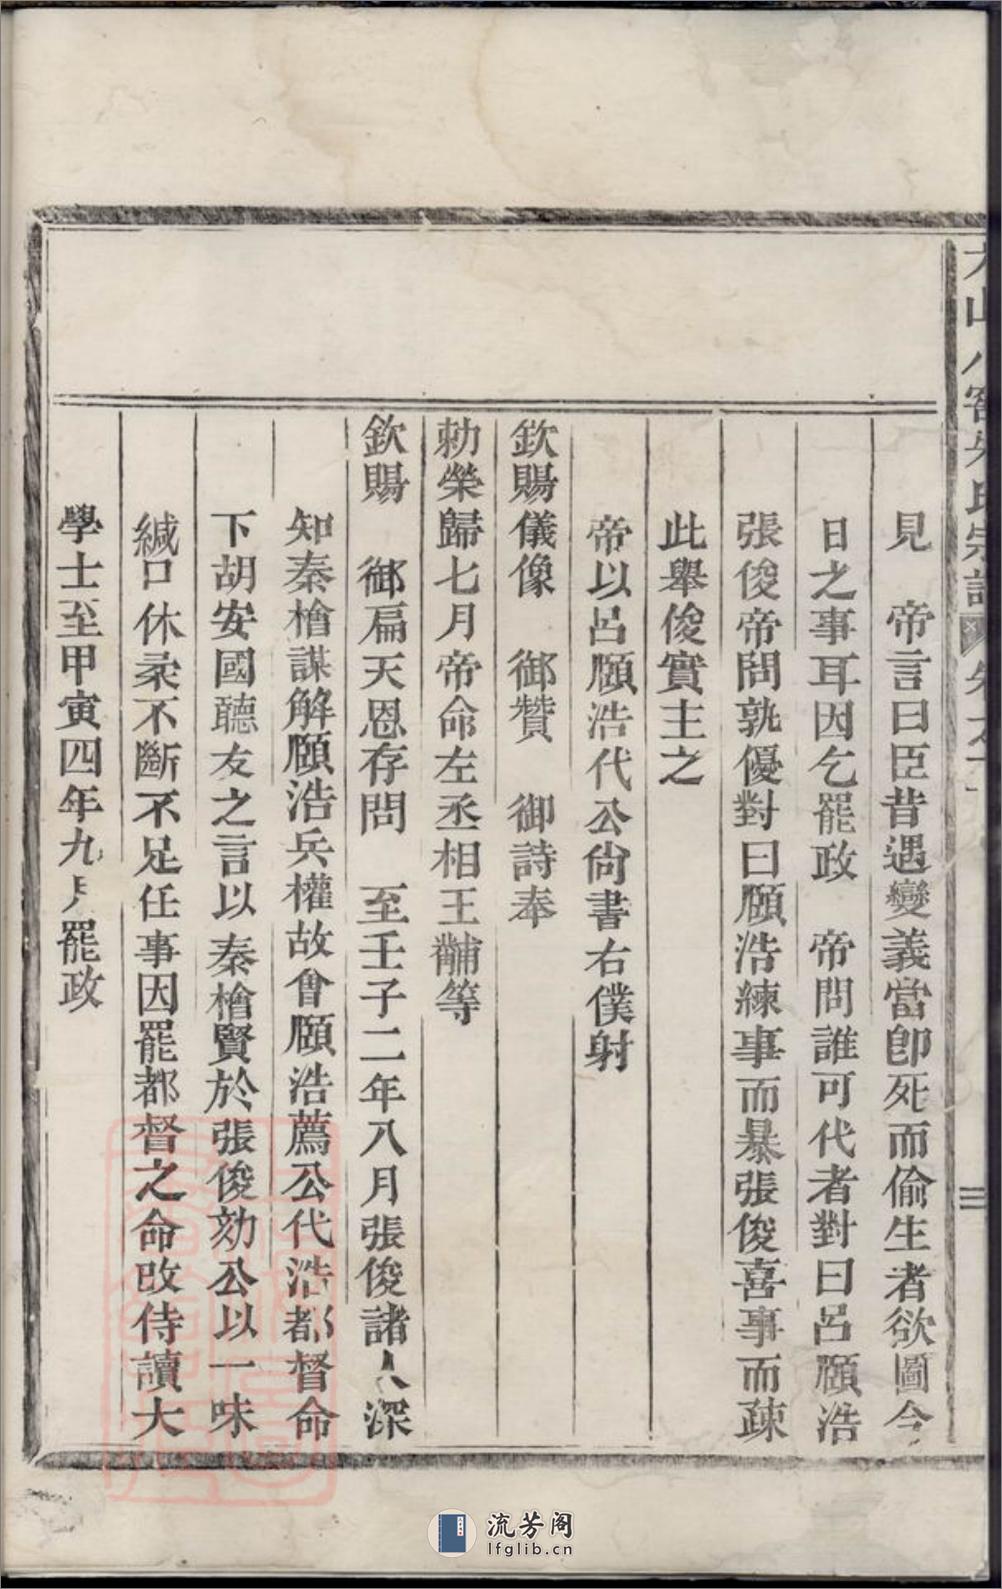 見　帝言曰臣昔遇變義當卽死而偷生者欲圖今
日之事耳因乞罷政　帝問誰可代者對曰呂頤浩
張俊帝問孰優對曰頤浩練事而暴張俊喜事而疎
此舉俊實主之
帝以呂頤浩代公尙書右僕射
欽賜儀像　御贊　御詩奉
勅榮歸七月帝命左丞相王黼等
欽賜　御扁天恩存問　至壬子二年八月張俊諸人深
知秦檜謀解頤浩兵權故會頤浩薦公代浩都督命
下胡安國聽友之言以秦檜賢於張俊効公以一味
緘口休柔不斷不足任事因罷都督之命改侍讀大
學士至甲寅四年九月罷政
流芳阁
lfglib.cn